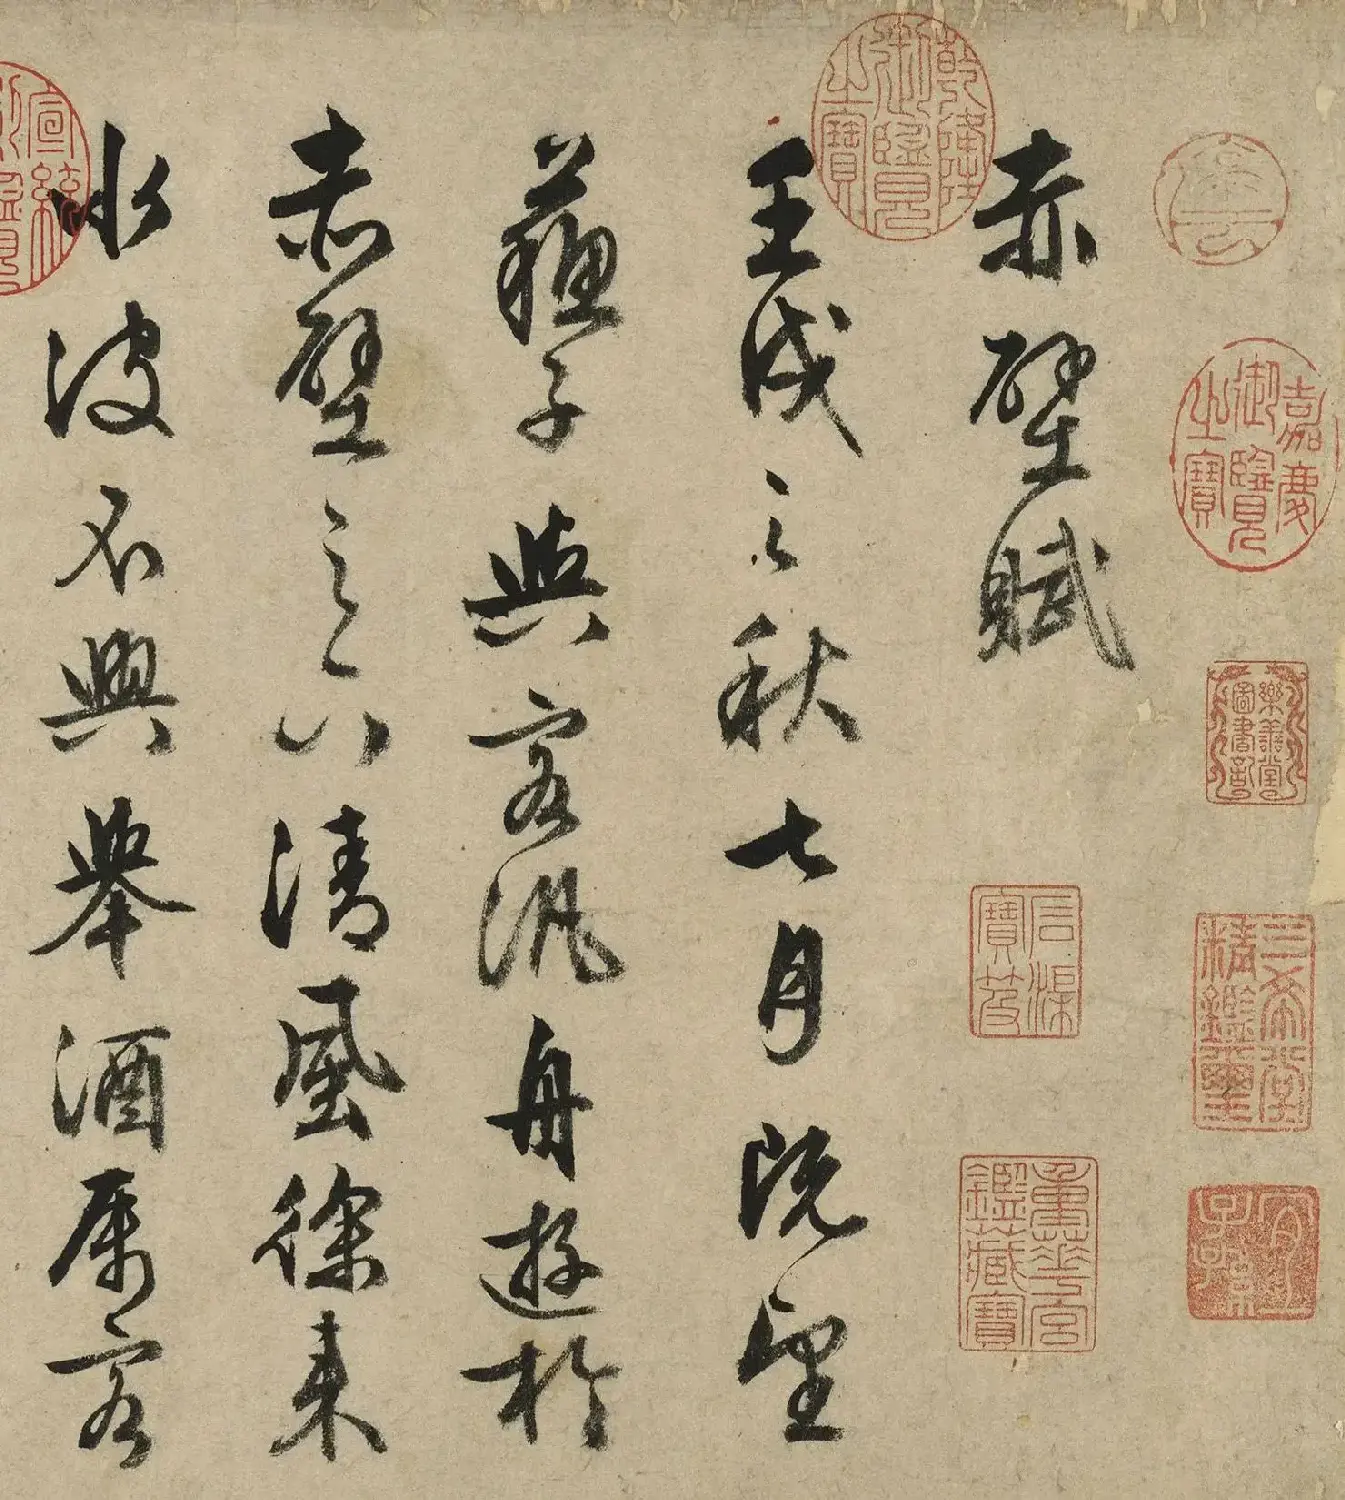 嘉慶御覽之寶
樂善堂圖書記
三希堂精鑑璽
宜子孫
赤壁賦
石渠寶笈
重華宮鑑藏寶
乾隆御覽之寶
壬戌之秋七月既望
蘇子與客汎舟遊於
赤壁之下清風徐來
水波不興舉酒属客
宣統御覽